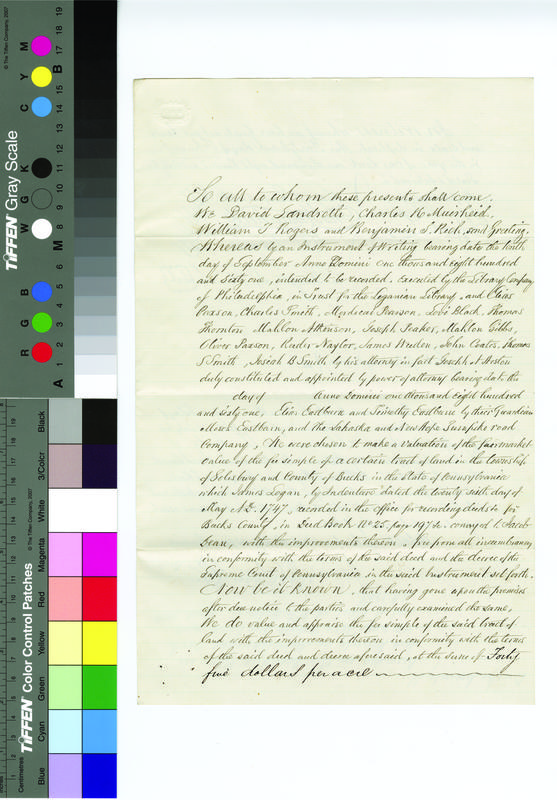 © The Tiffen Company, 2007
TIFFEN Gray Scale
R G B W G K C Y M
A 1 2 3 4 5 6 M 8 9 10 11 12 13 14 15 B 17 18 19
TIFFEN Color Control Patches
© The Tiffen Company, 2007
Centimetres
Blue Cyan Green Yellow Red Magenta White 3/Color Black
To all to whom these presents shall come.
We David Landreth, Charles H Muirheid,
William T Rogers and Benjamin S. Rich, send Greeting.
Whereas by an Instrument of Writing bearing date the tenth
day of September Anno Domini one thousand eight hundred
and sixty one, intended to be recorded. Executed by the Library Company
of Philadelphia, in trust for the Loganian Library, and Elias
Paxson, Charles Smith, Mordecai Pearson, Levi Black, Thomas
Thornton Mahlon Atkinson, Joseph Feaker, Mahlon Gibbs,
Oliver Paxson, Reeder Naylor, James Weeden, John Coates, Thomas
S Smith, Josiah B Smith by his attorney in fact Joseph
duly constituted and appointed by power of attorney bearing date the
day of Anno Domini one thousand eight hundred
and sixty one, Elias Eastburn and Timothy Eastburn by their Guardian
Moses Eastburn, and the Lahaska and New Hope Turnpike road
Company, We were chosen to make a Valuation of the fair market
value of the fee simple of a certain tract of land in the township
of Solebury and County of Bucks in the State of Pennsylvania
which James Logan, by Indenture dated the twenty sixth day of
May A.D. 1747, recorded in the office for recording deeds in for
Bucks County, in Deed Book No 25, page 197 &c. conveyed to Jacob
Dean, with the improvements thereon, free from all incumbrances
in conformity with the terms of the said deed and the decree of the
Supreme Court of Pennsylvania in the said Instrument set forth.
Now be it Known, that having gone upon the premises
after due notice to the parties and carefully examined the same,
We do value and appraise the fee simple of the said tract of
land with the improvements thereon in conformity with the terms
of the said deed and decree aforesaid, at the sum of Forty
five dollars per acre